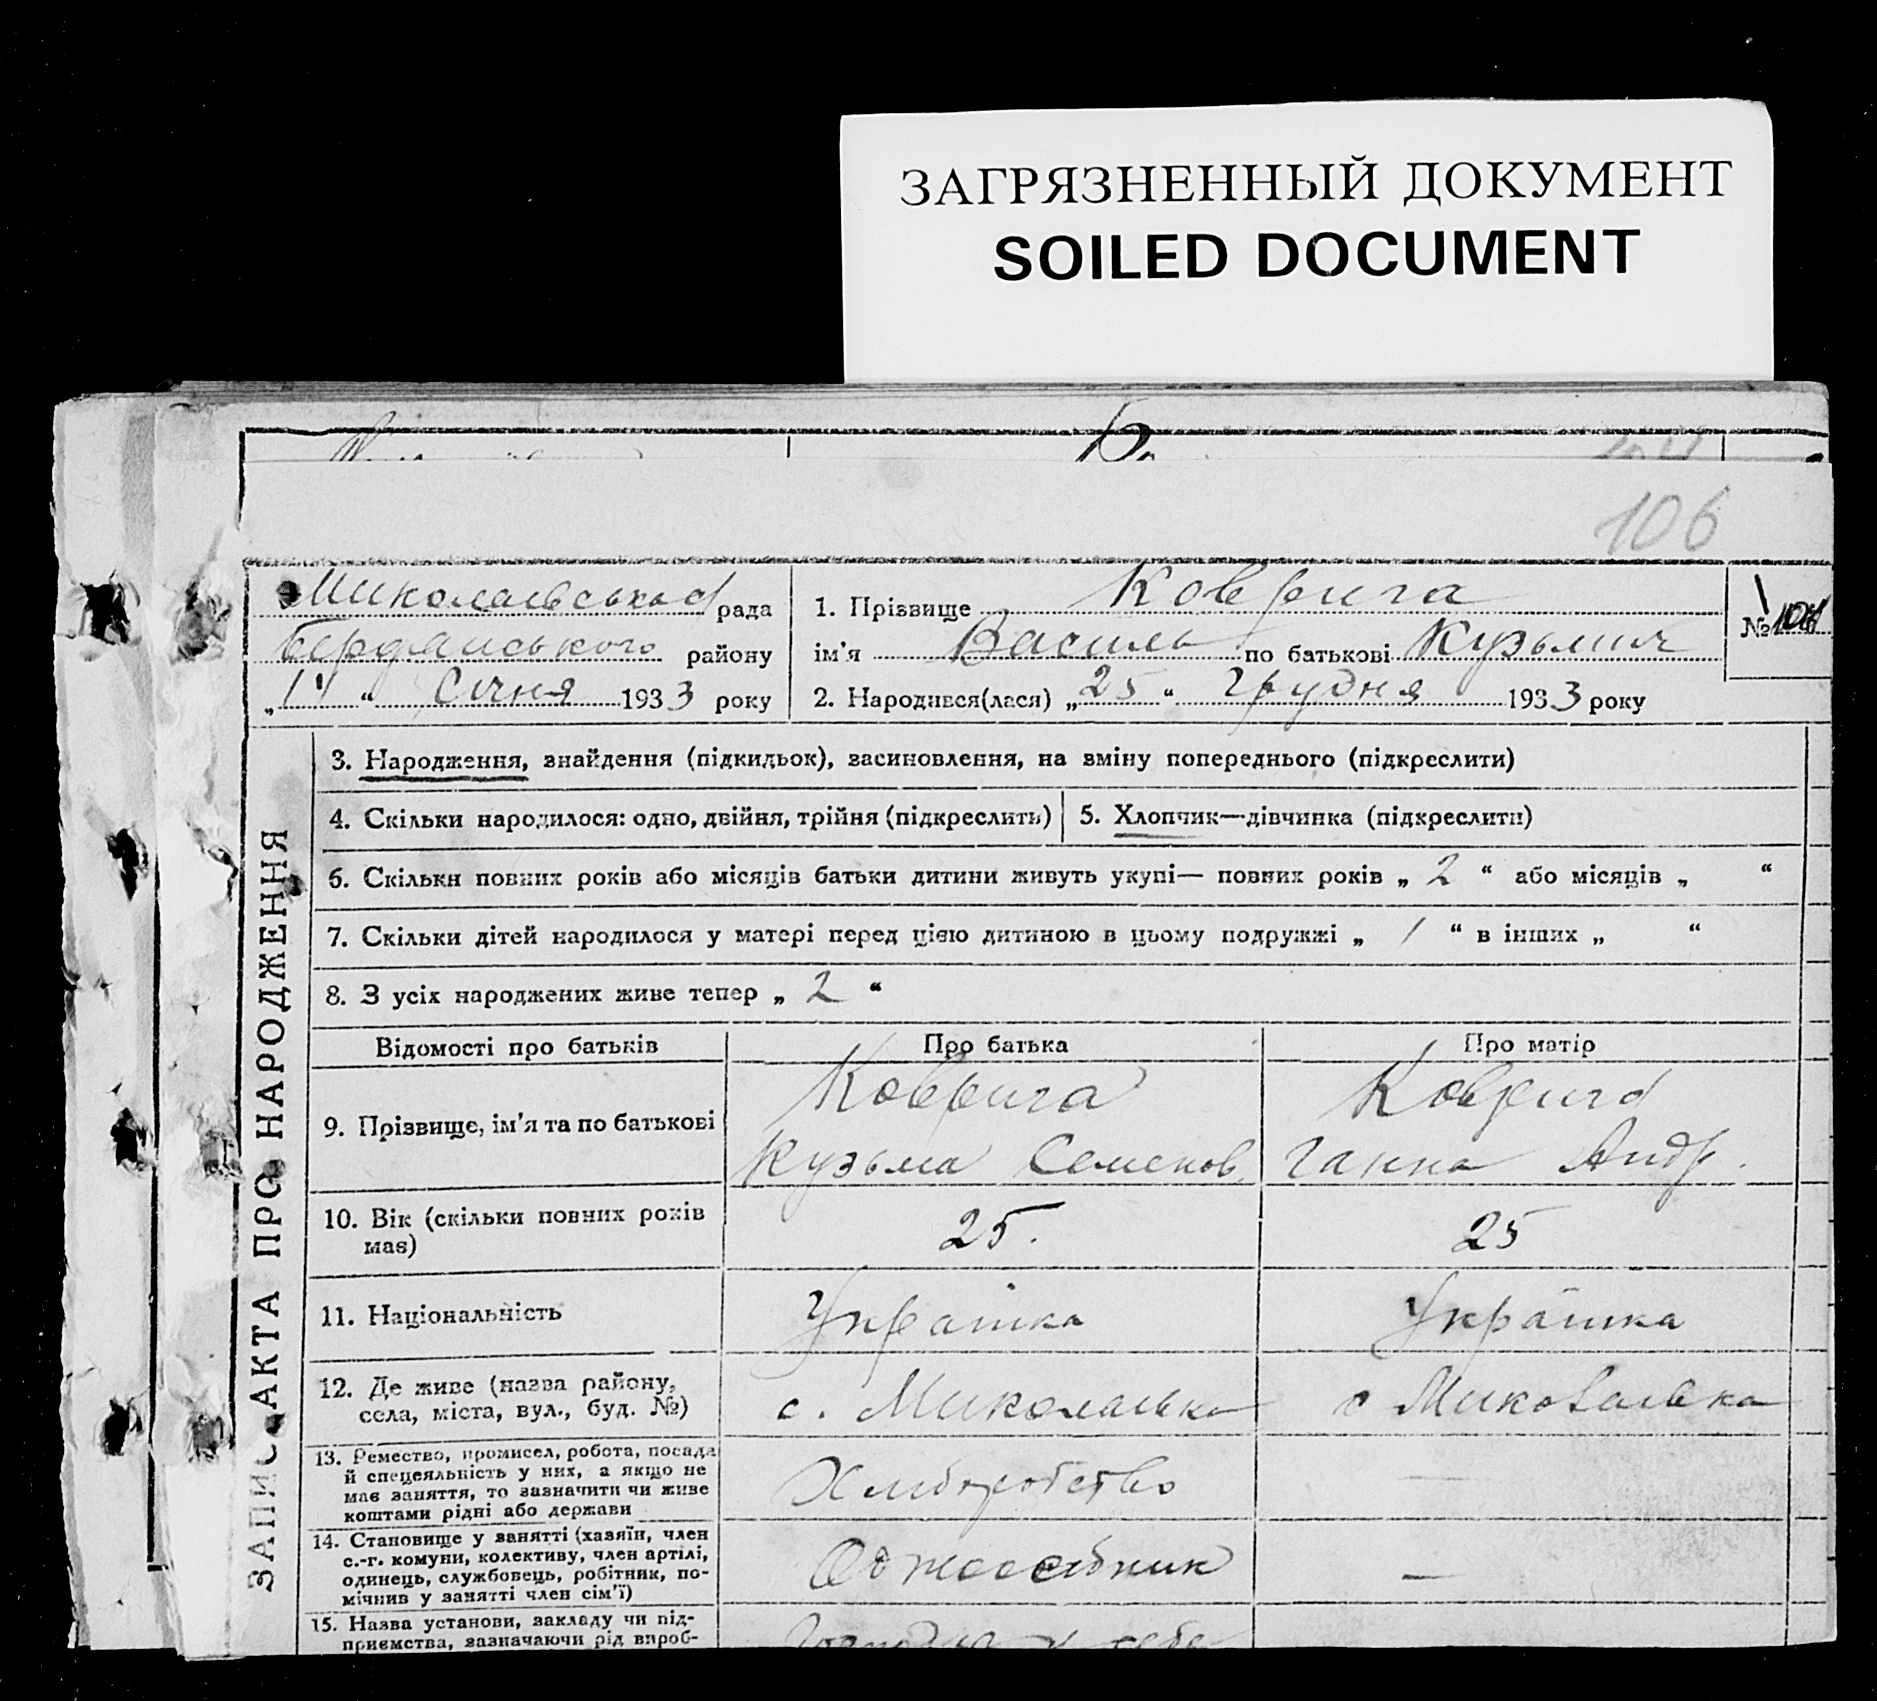 ЗАГРЯЗНЕННЫЙ ДОКУМЕНТ
SOILED DOCUMENT
106
Миколаївська рада
Бердянського району
„ “ Січня 1933 року
1. Прізвище Коврига
ім'я Василь по батькові Кузьмич
2. Народився(лася) „25“ Грудня 1933 року
№
ЗАПИС АКТА ПРО НАРОДЖЕННЯ
3. Народження, знайдення (підкидьок), засиновлення, на зміну попереднього (підкреслити)
4. Скільки народилося: одно, двійня, трійня (підкреслить)
5. Хлопчик—дівчинка (підкреслити)
6. Скільки повних років або місяців батьки дитини живуть укупі— повних років „ 2 “ або місяців „ “
7. Скільки дітей народилося у матері перед цією дитиною в цьому подружжі „ 1 “ в інших „ “
8. З усіх народжених живе тепер „ 2 “
Відомості про батьків
Про батька
Про матір
9. Прізвище, ім'я та по батькові
Коврига
Кузьма Семенов.
Коврига
Ганна Андр.
10. Вік (скільки повних років
має)
25.
25
11. Національність
Українка
Українка
12. Де живе (назва району,
села, міста, вул., буд. №)
с. Миколаївка
с Миколаївка
13. Ремество, промисел, робота, посада
й спецеяльність у них, а якщо не
має заняття, то зазначити чи живе
коштами рідні або держави
Хліборобство
—
14. Становище у занятті (хазяїн, член
с.-г. комуни, колективу, член артілі,
одинець, службовець, робітник, по-
мічнив у занятті член сім'ї)
Одноосібник
—
15. Назва установи, закладу чи під-
приємства, зазначаючи рід вироб-
у себе